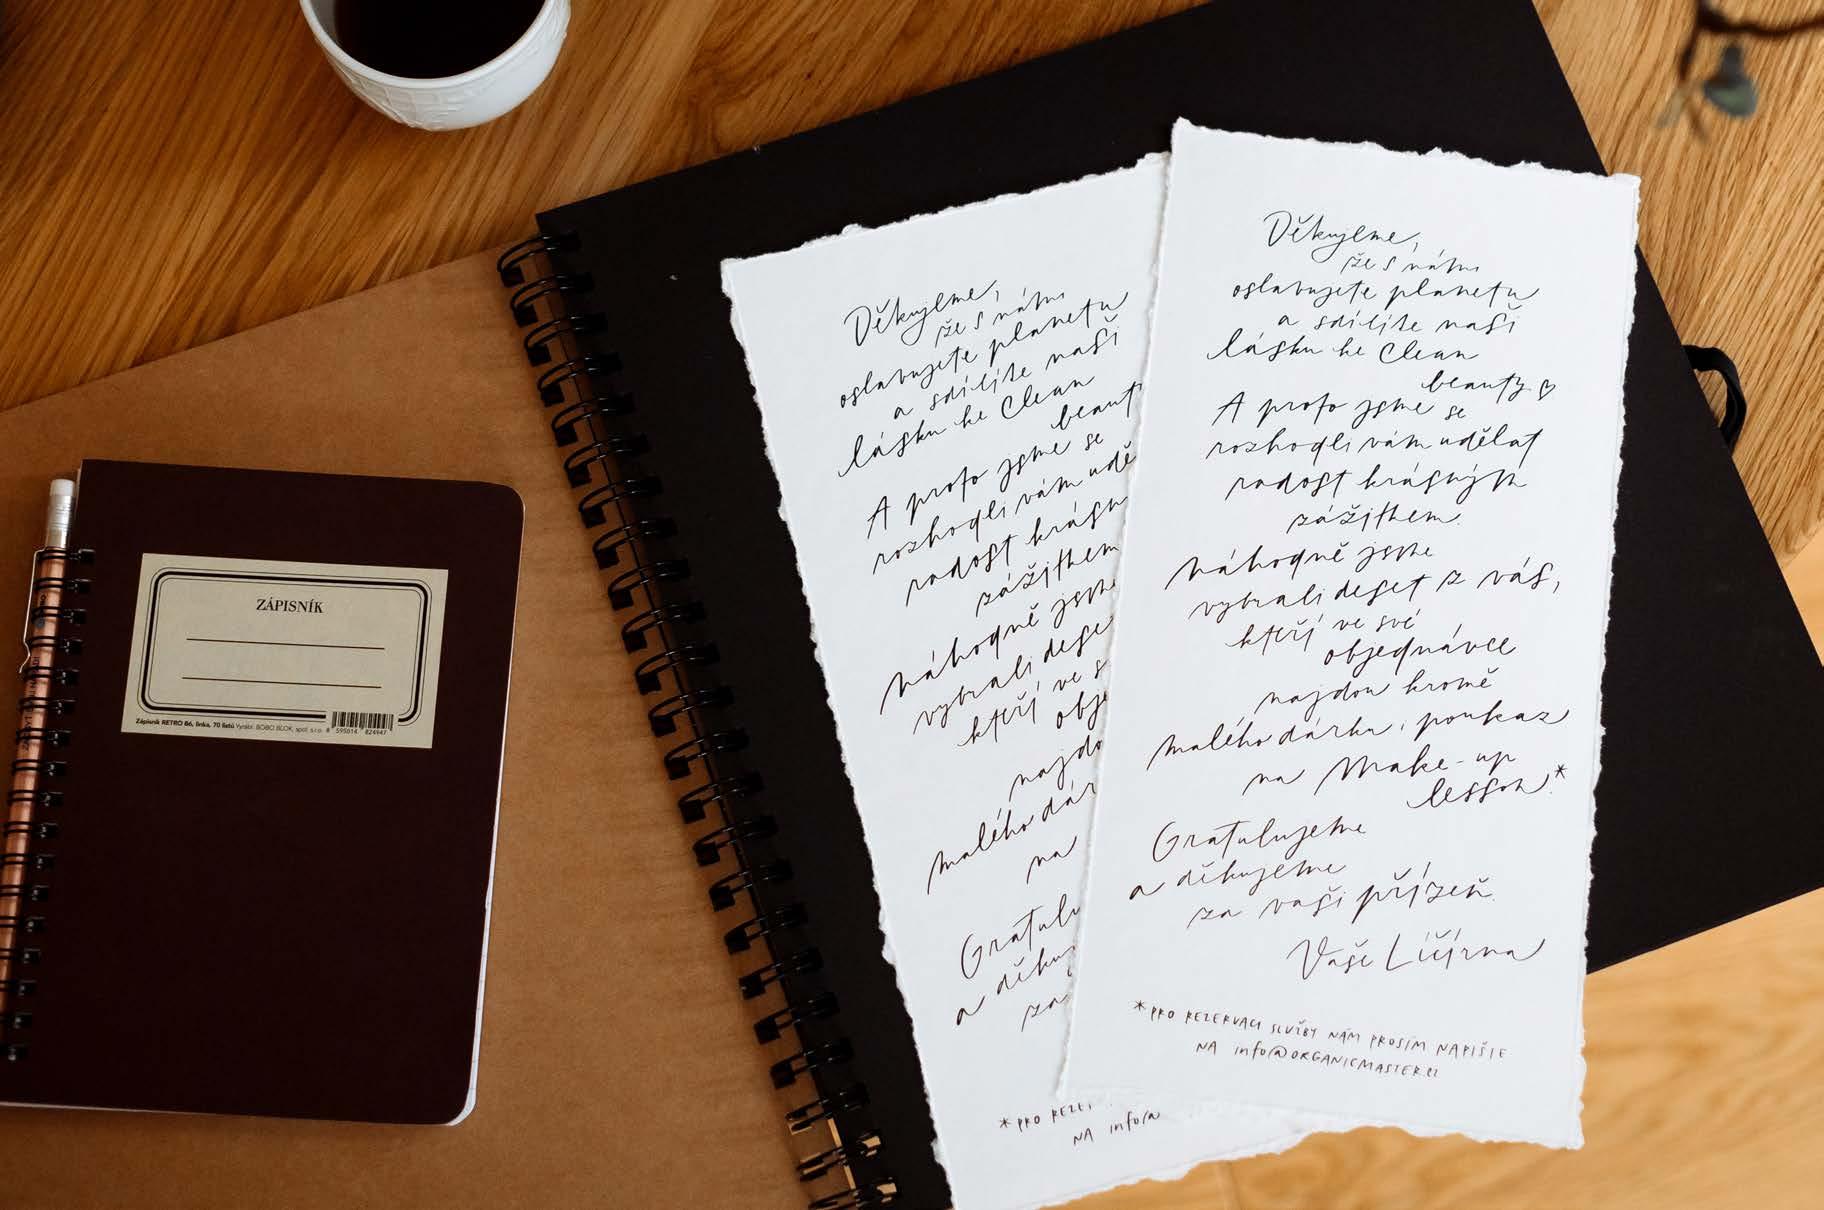 ZÁPISNÍK
Zápisník RETRO B6, linka, 70 listů Vyrábí: BOBO BLOK, spol. s r.o.
8 595014 824947
Děkujeme,
že s námi
oslavujete planetu
a sdílíte naši
lásku ke Clean
beaut
A proto jsme se
rozhodli vám udě
radost krásn
zážitkem
Náhodně jsme
vybrali dese
kteří ve s
obje
najdo
malého dár
na
Gratulu
a děku
za
*PRO REZE
NA info@
Děkujeme,
že s námi
oslavujete planetu
a sdílíte naši
lásku ke Clean
beauty ♡
A proto jsme se
rozhodli vám udělat
radost krásným
zážitkem.
Náhodně jsme
vybrali deset z vás,
kteří ve své
objednávce
najdou kromě
malého dárku, i poukaz
na Make-up
lesson.*
Gratulujeme
a děkujeme
za vaši přízeň.
Vaše Líčírna
*PRO REZERVACI SLUŽBY NÁM PROSÍM NAPIŠTE
NA info@ORGANICMASTER.cz